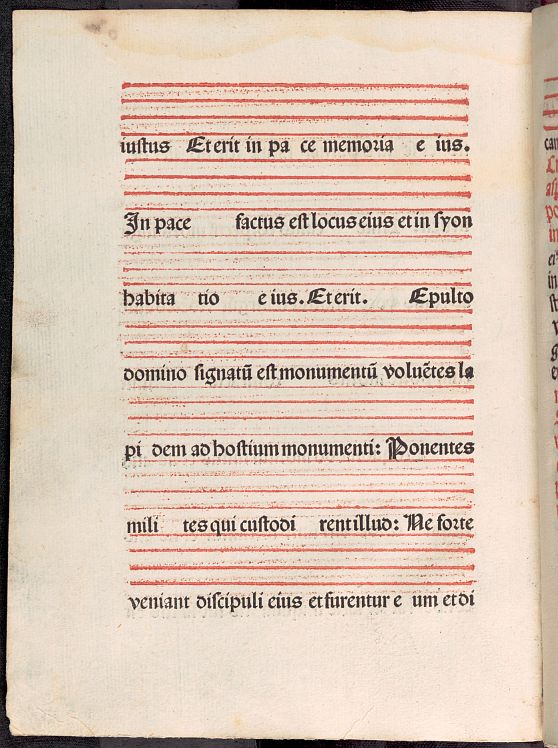 iustus Et erit in pa ce memoria e ius.
In pace factus est locus eius et in syon
habita tio e ius. Et erit. Epulto
domino signatū est monumentū voluētes la
pi dem ad hostium monumenti: Ponentes
mili tes qui custodi rent illud: Ne forte
veniant discipuli eius et furentur e um et di